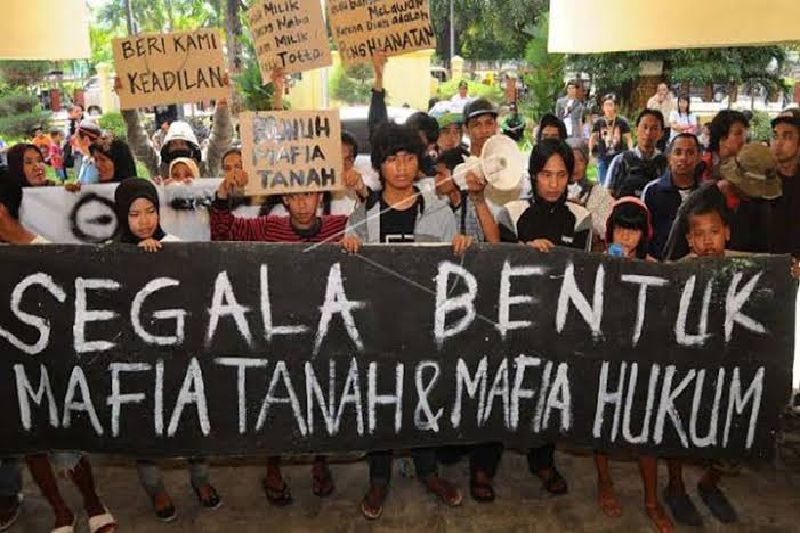 BERI KAMI
KEADILAN
MILIK
MILIK
TOTTA
MELAWAN
Karena Diam adalah
PENGHIANATAN
MAFIA
TANAH
SEGALA BENTUK
MAFIA TANAH & MAFIA HUKUM